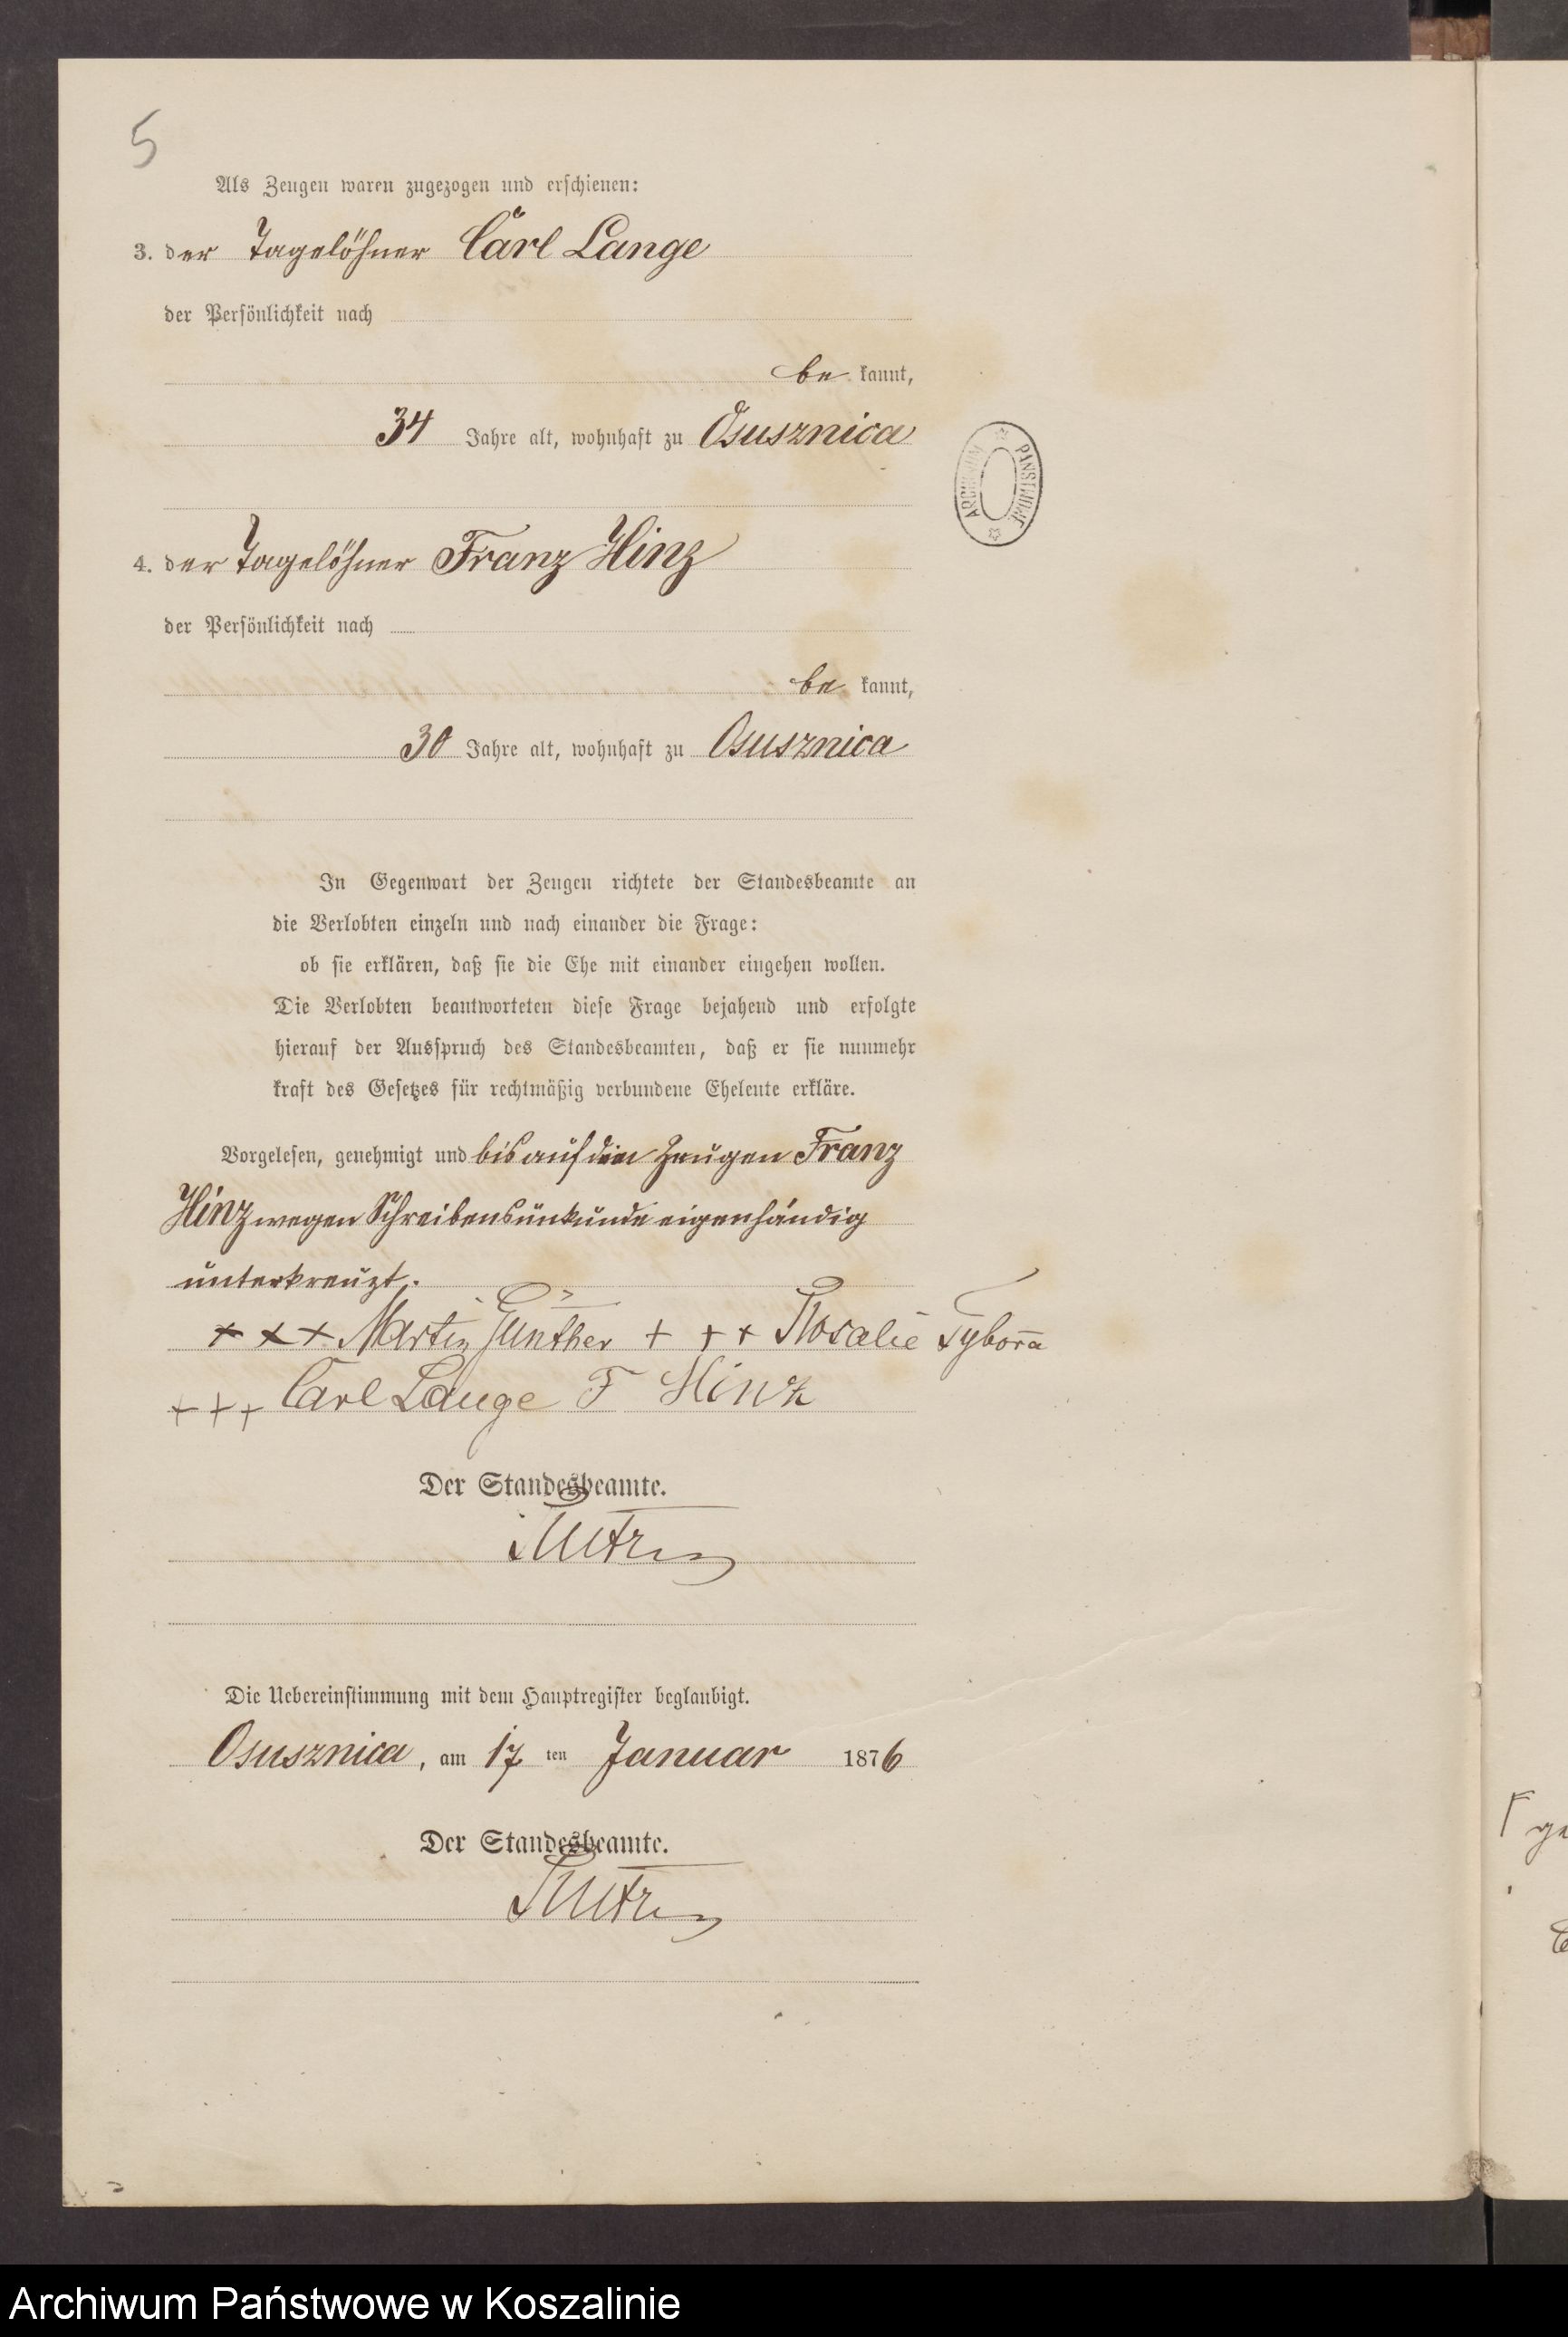 5
Als Zeugen waren zugezogen und erschienen:
3. der Tagelöhner Carl Lange
der Persönlichkeit nach
be kannt,
34 Jahre alt, wohnhaft zu Osusznica
ARCHIWUM PAŃSTWOWE
4. der Tagelöhner Franz Hinz
der Persönlichkeit nach
be kannt,
30 Jahre alt, wohnhaft zu Osusznica
In Gegenwart der Zeugen richtete der Standesbeamte an
die Verlobten einzeln und nach einander die Frage:
ob sie erklären, daß sie die Ehe mit einander eingehen wollen.
Die Verlobten beantworteten diese Frage bejahend und erfolgte
hierauf der Ausspruch des Standesbeamten, daß er sie nunmehr
kraft des Gesetzes für rechtmäßig verbundene Eheleute erkläre.
Vorgelesen, genehmigt und bis auf den Zeugen Franz
Hinz wegen Schreibensunkunde eigenhändig
unterkreuzt.
+ + + Martin Günther + + + Rosalie Tyborra
+ + + Carl Lange F Hinz
Der Standesbeamte.
Die Uebereinstimmung mit dem Hauptregister beglaubigt.
Osusznica, am 17 ten Januar 1876
Der Standesbeamte.
Archiwum Państwowe w Koszalinie